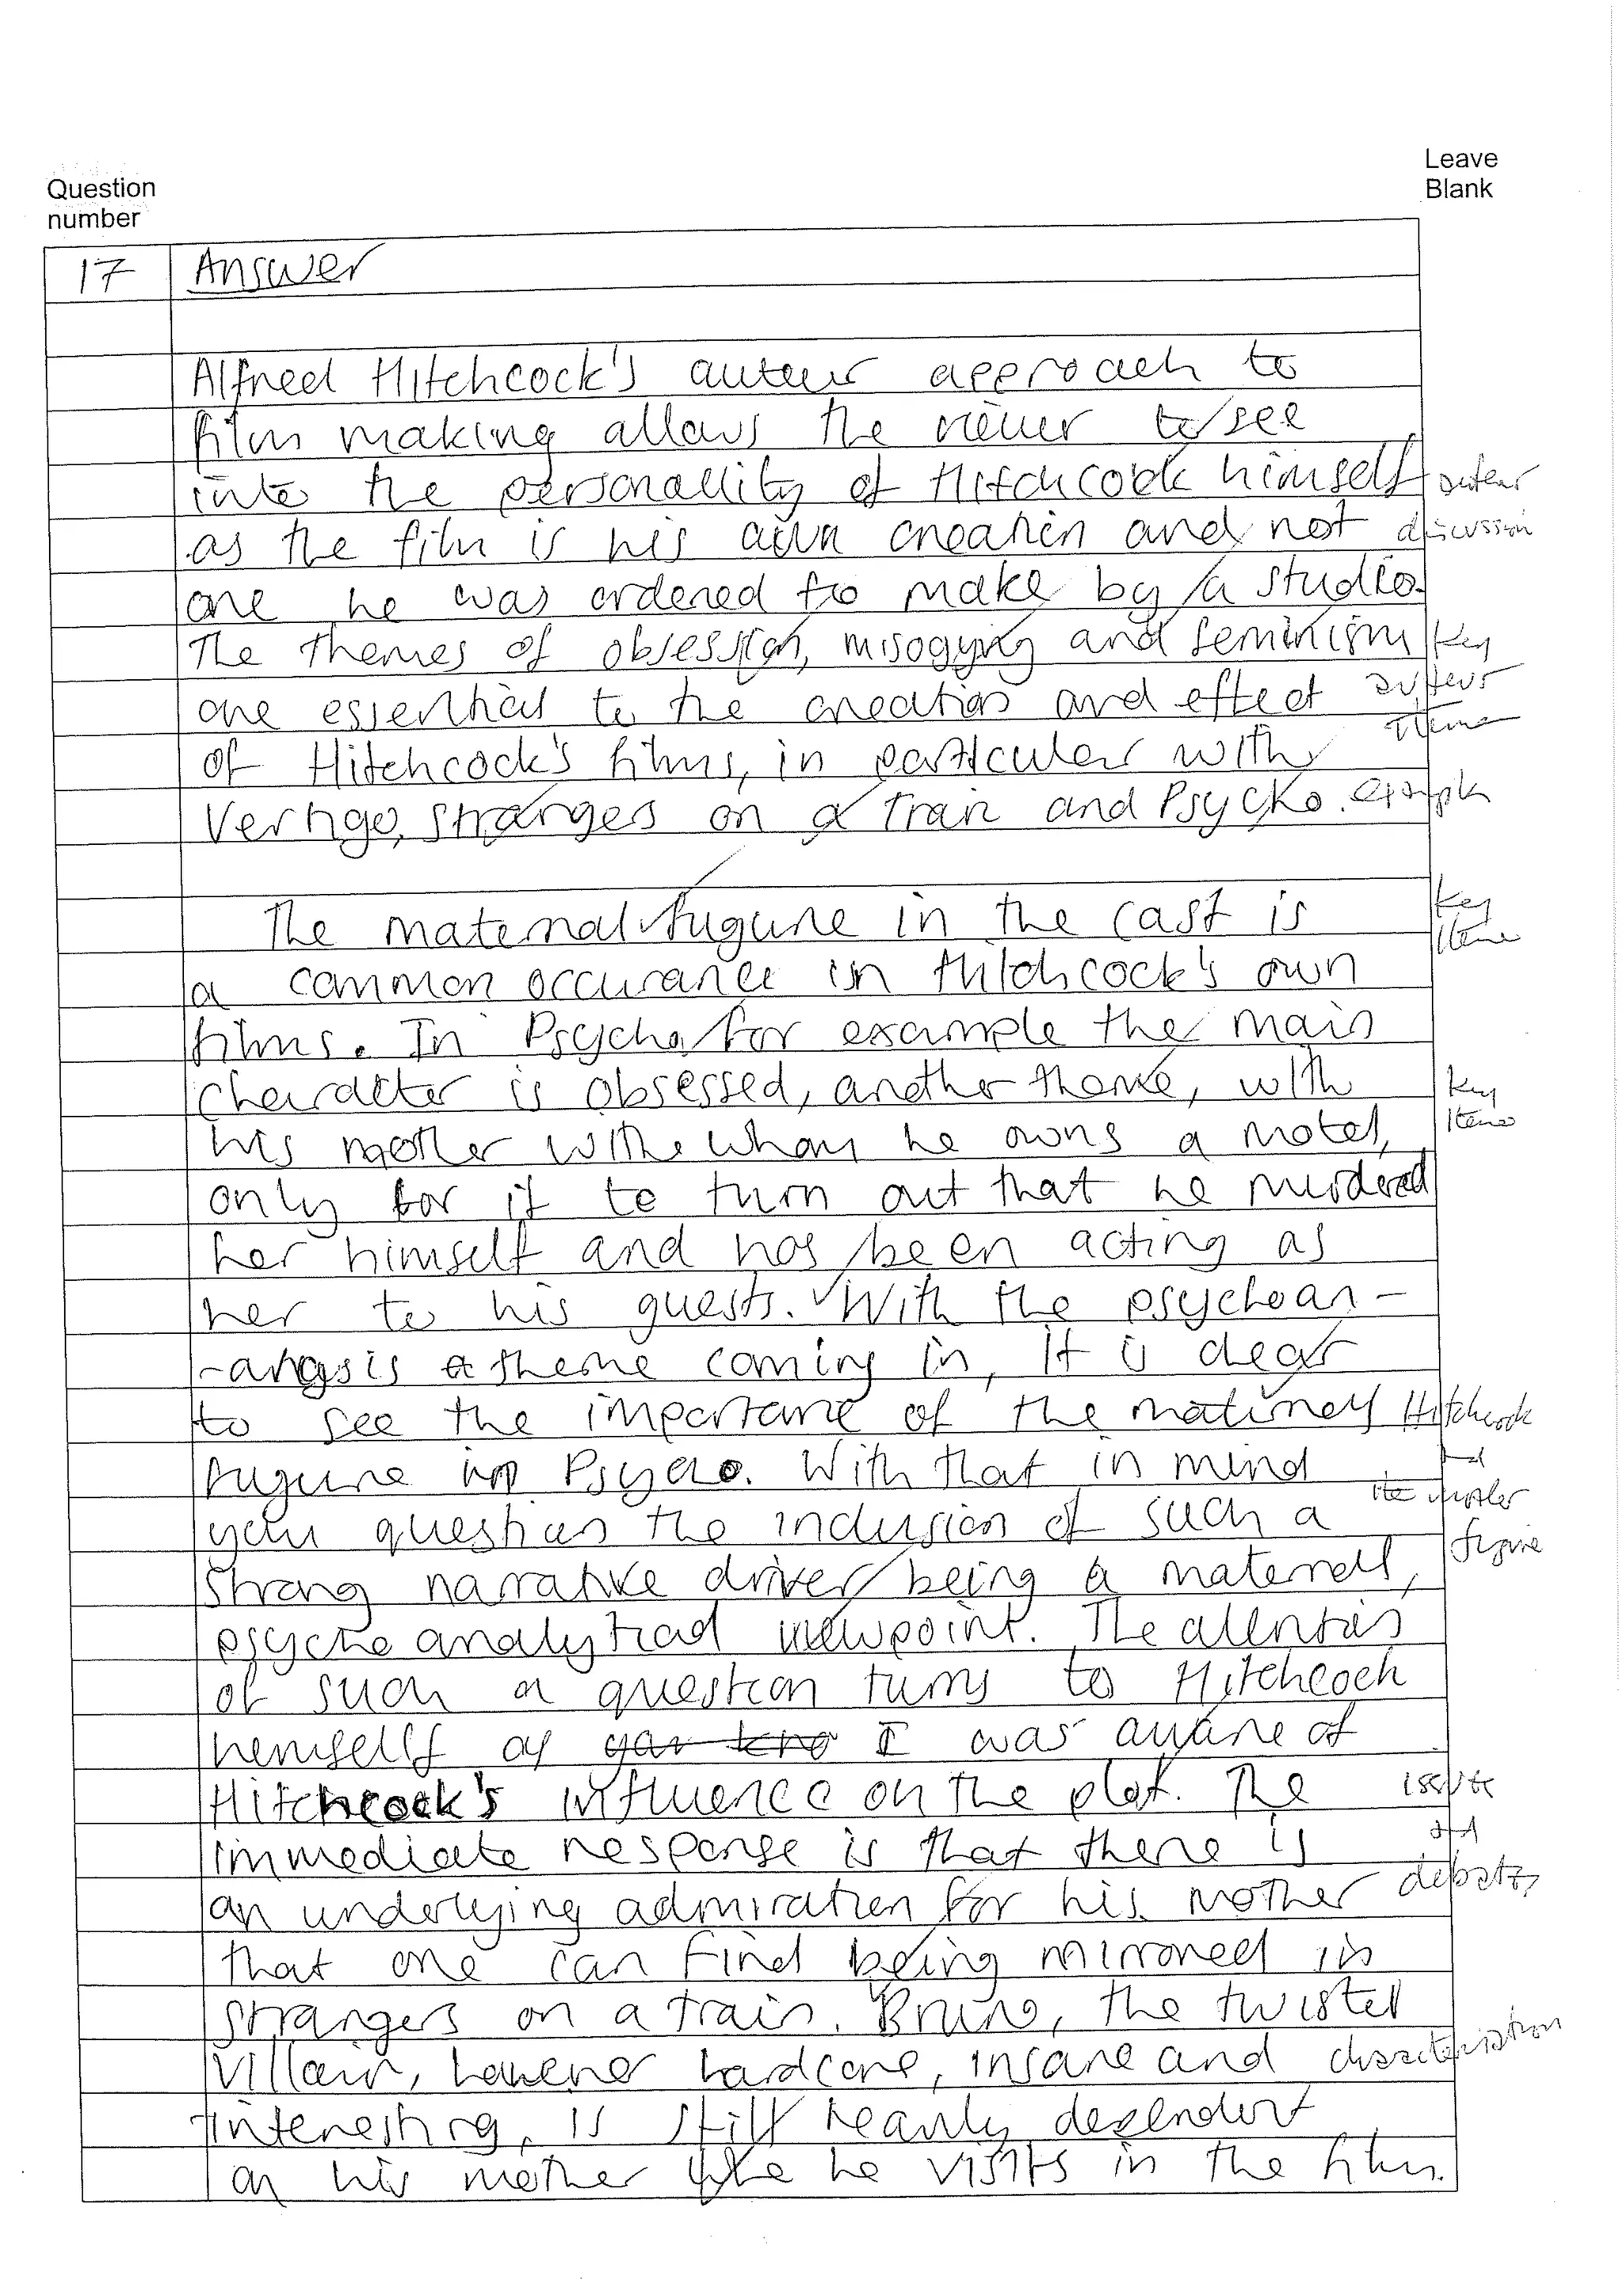 Leave
Blank
Question
number
17 Answer
Alfred Hitchcock's auteur approach to
film making allows the viewer to see
into the personallity of Hitchcock himself auteur
as the film is his own creation and not discussion
one he was ordered to make by a studio.
The themes of obsession, misogyny and feminism Key
are essential to the creation and effect auteur
of Hitchcock's films, in particular with theme
Vertigo, Stranges on a Train and Psycko. example
The maternal fugure in the cast is Key
theme
a common occurance in Hitchcock's own
films. In Psycho for example the main
character is obsessed, another theme, with Key
his mother withe whom he owns a motel, theme
only for it to turn out that he murdered
her himself and has been acting as
her to his guests. With the psychoan-
-angsis theme coming in, it is clear
to see the importance of the Hitchcock
fugure in Psycho. With that in mind and
you question the inclusion of such a the mother
figure
strong narrative driver being a maternal,
psycho analytical viewpoint. The
of such a question turns to Hitchcock
himself as I was aware of
Hitchcock's influence on the plot. The issues
immediate response is that there is and
an underlying admiration for his mother debates
that one can find being mirrored in
strangers on a train. Bruno, the twisted
villain, however hardcore, insane and characterisation
interesting, is still dependent
on his mother he visits in the film.